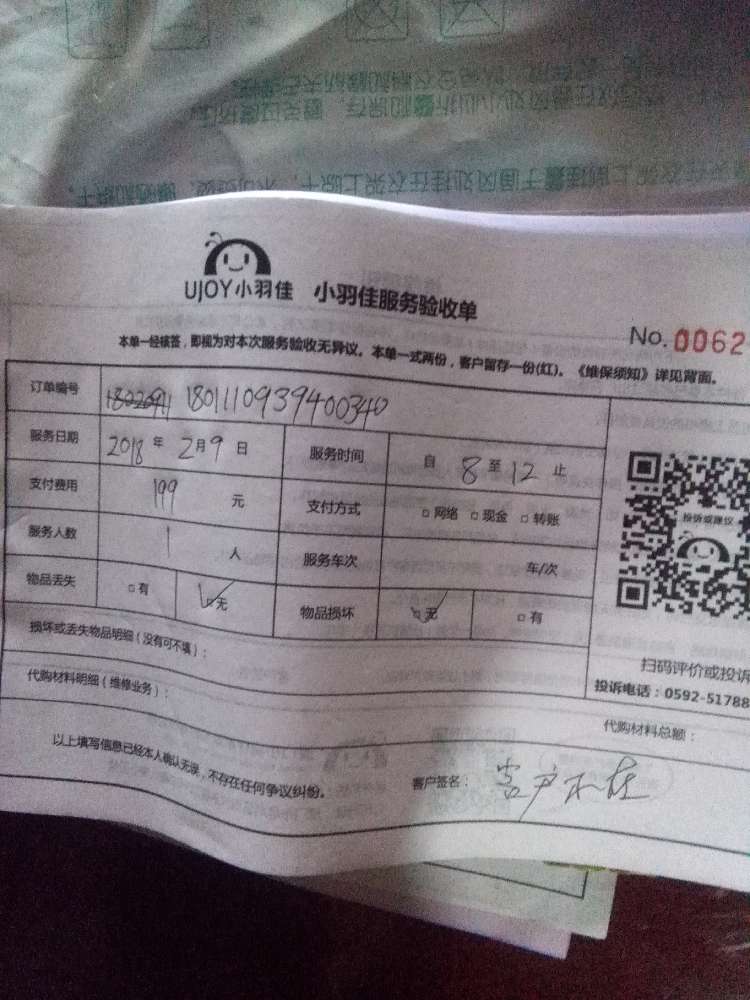 UJOY小羽佳 小羽佳服务验收单
No. 0062
本单一经核签，即视为对本次服务验收无异议。本单一式两份，客户留存一份(红)。《维保须知》详见背面。
订单编号 1801110939400340
服务日期 2018 年 2月 9 日 服务时间 自 8 至 12 止
支付费用 199 元 支付方式 □ 网络 □ 现金 □ 转账
服务人数 1 人 服务车次 车/次
物品丢失 □ 有 □ 无 物品损坏 □ 无 □ 有
投诉或建议
损坏或丢失物品明细（没有可不填）：
扫码评价或投诉
投诉电话：0592-51788
代购材料明细（维修业务）：
代购材料总额：
以上填写信息已经本人确认无误，不存在任何争议纠纷。
客户签名： 客户不在